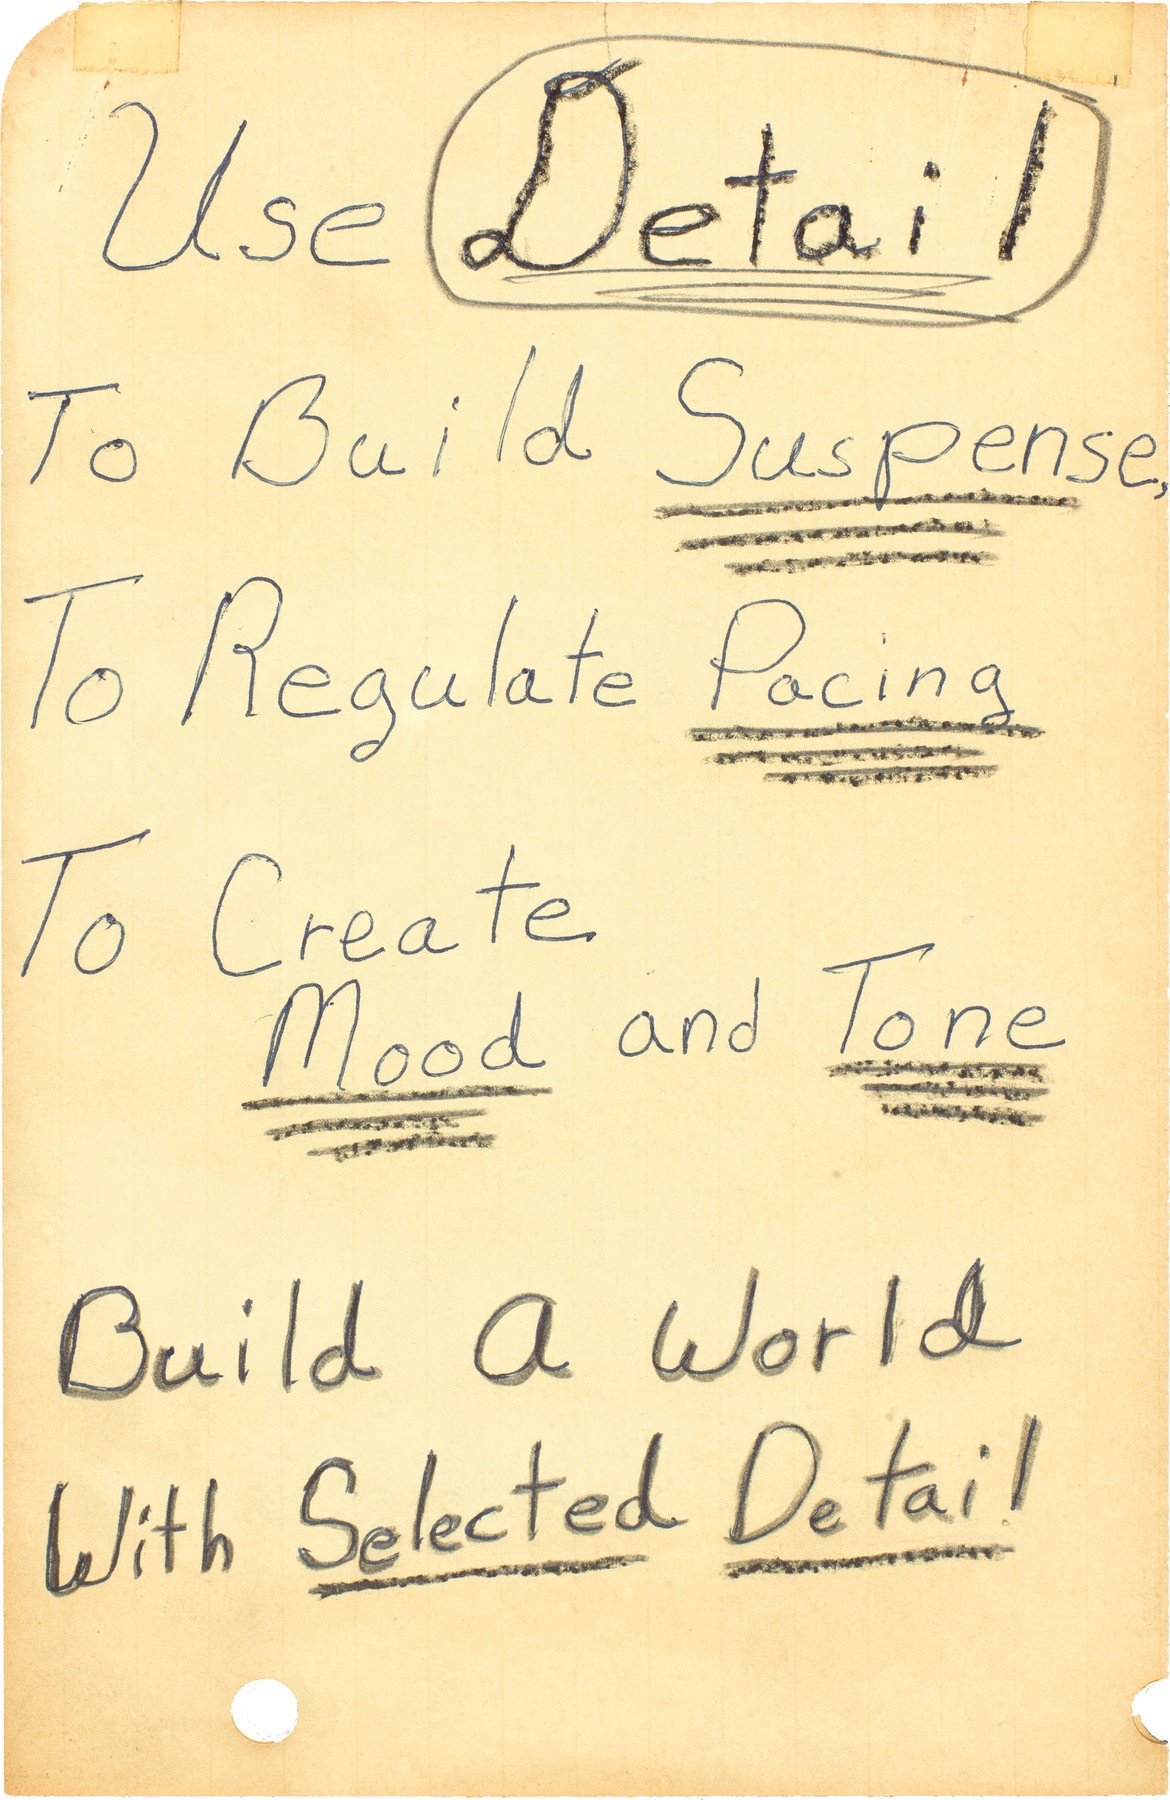 Use Detail
To Build Suspense,
To Regulate Pacing
To Create
Mood and Tone
Build A World
With Selected Detail